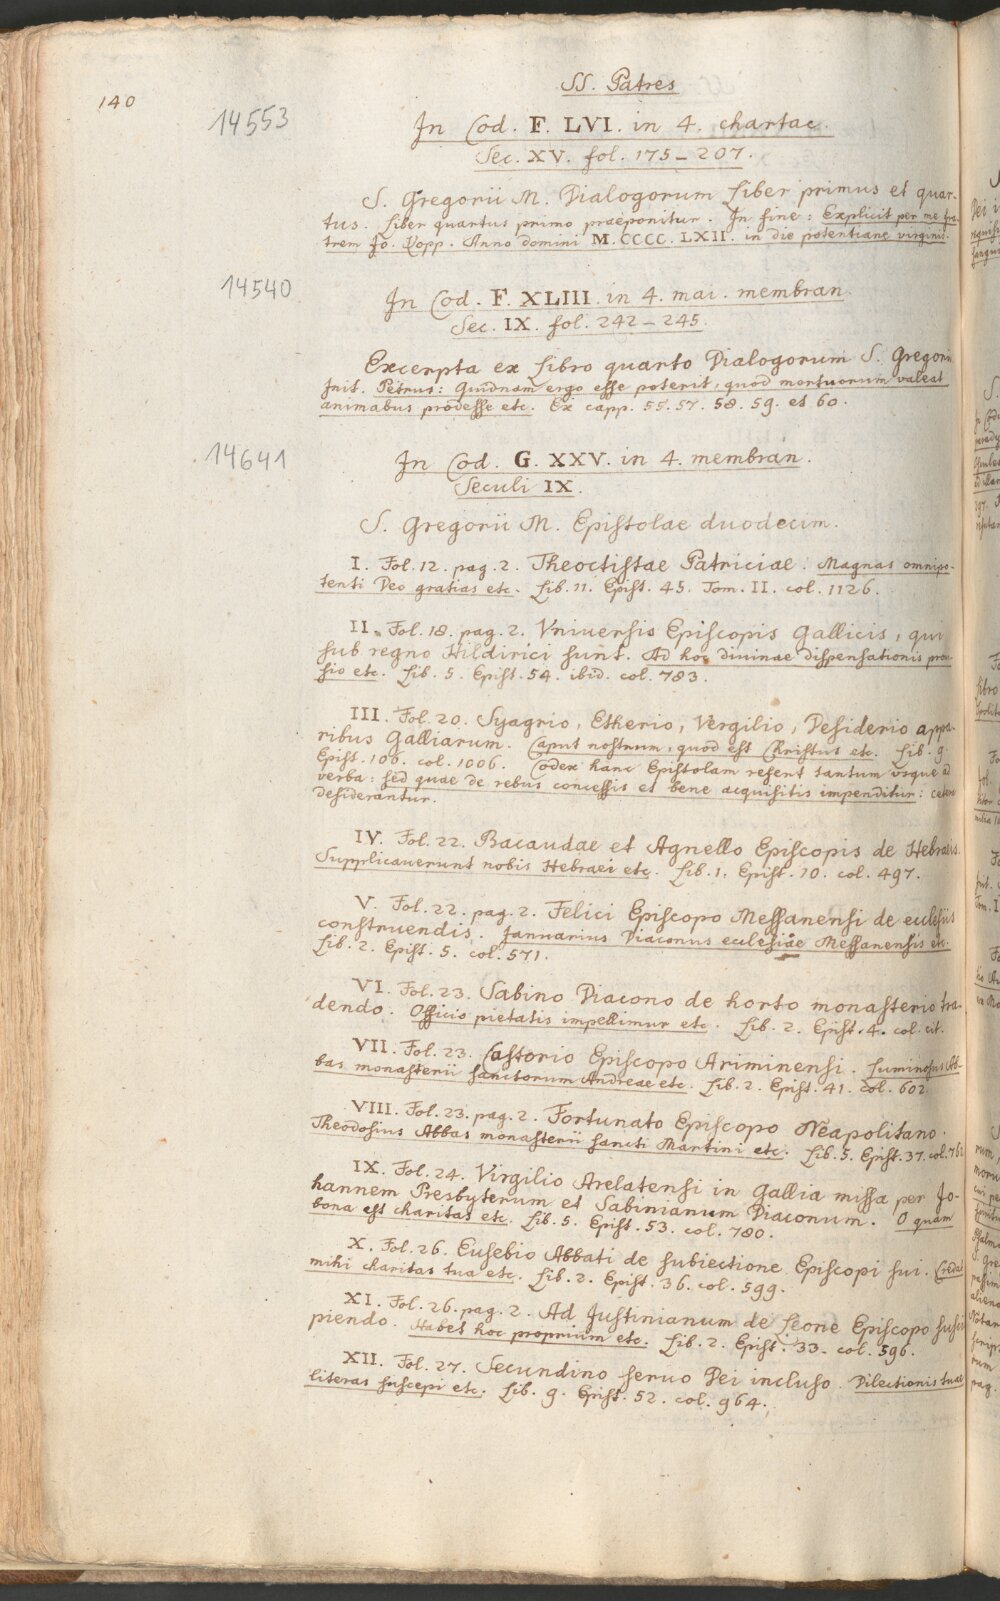 140
SS. Patres
14553
In Cod. F. LVI. in 4. chartac.
Sec. XV. fol. 175_207.
S. Gregorii M. Dialogorum Liber primus et quar-
tus. Liber quartus primo praeponitur. In fine: Explicit per me fra-
trem Jo. Anno domini M.CCCC.LXII. in die potentiane virginis.
14540
In Cod. F. XLIII. in 4. mai. membran.
Sec. IX. fol. 242_245.
Excerpta ex Libro quarto Dialogorum S. Gregorii
Init. Petrus: Quidnam ergo esse poterit, quod mortuorum valeat
animabus prodesse etc. Ex capp. 55. 57. 58. 59. et 60.
14641
In Cod. G. XXV. in 4. membran.
Seculi IX.
S. Gregorii M. Epistolae duodecim.
I. Fol. 12. pag. 2. Theoctistae Patriciae. Magnas omnipo-
tenti Deo gratias etc. Lib. 11. Epist. 45. Tom. II. col. 1126.
II. Fol. 18. pag. 2. Vniuersis Episcopis Gallicis, qui
sub regno Hildirici sunt. Ad hoc diuinae dispensationis proui-
sio etc. Lib. 5. Epist. 54. ibid. col. 783.
III. Fol. 20. Syagrio, Etherio, Vergilio, Desiderio appa-
ribus Galliarum. Caput nostrum, quod est Christus etc. Lib. 9.
Epist. 106. col. 1006. Codex hanc Epistolam refert tantum vsque ad
verba: sed quae de rebus concessis et bene acquisitis impenditur: cetera
desiderantur.
IV. Fol. 22. Bacaudae et Agnello Episcopis de Hebraeis.
Supplicauerunt nobis Hebraei etc. Lib. 1. Epist. 10. col. 497.
V. Fol. 22. pag. 2. Felici Episcopo Messanensi de eclesiis
construendis. Januarius Diaconus eclesiae Messanensis etc.
Lib. 2. Epist. 5. col. 571.
VI. Fol. 23. Sabino Diacono de horto monasterio tra-
dendo. Officio pietatis impellimur etc. Lib. 2. Epist. 4. col. cit.
VII. Fol. 23. Castorio Episcopo Ariminensi. Luminosus Ab-
bas monasterii sanctorum Andreae etc. Lib. 2. Epist. 41. col. 602.
VIII. Fol. 23. pag. 2. Fortunato Episcopo Neapolitano.
Theodosius Abbas monasterii sancti Martini etc. Lib. 5. Epist. 37. col. 762
IX. Fol. 24. Virgilio Arelatensi in Gallia missa per Jo-
hannem Presbyterum et Sabinianum Diaconum. O quam
bona est charitas etc. Lib. 5. Epist. 53. col. 780.
X. Fol. 26. Eusebio Abbati de subiectione Episcopi sui. Credat
mihi charitas tua etc. Lib. 2. Epist. 36. col. 599.
XI. Fol. 26. pag. 2. Ad Justinianum de Leone Episcopo susci-
piendo. Habet hoc proprium etc. Lib. 2. Epist. 33. col. 596.
XII. Fol. 27. Secundino seruo Dei incluso. Dilectionis tuae
literas suscepi etc. Lib. 9. Epist. 52. col. 964.